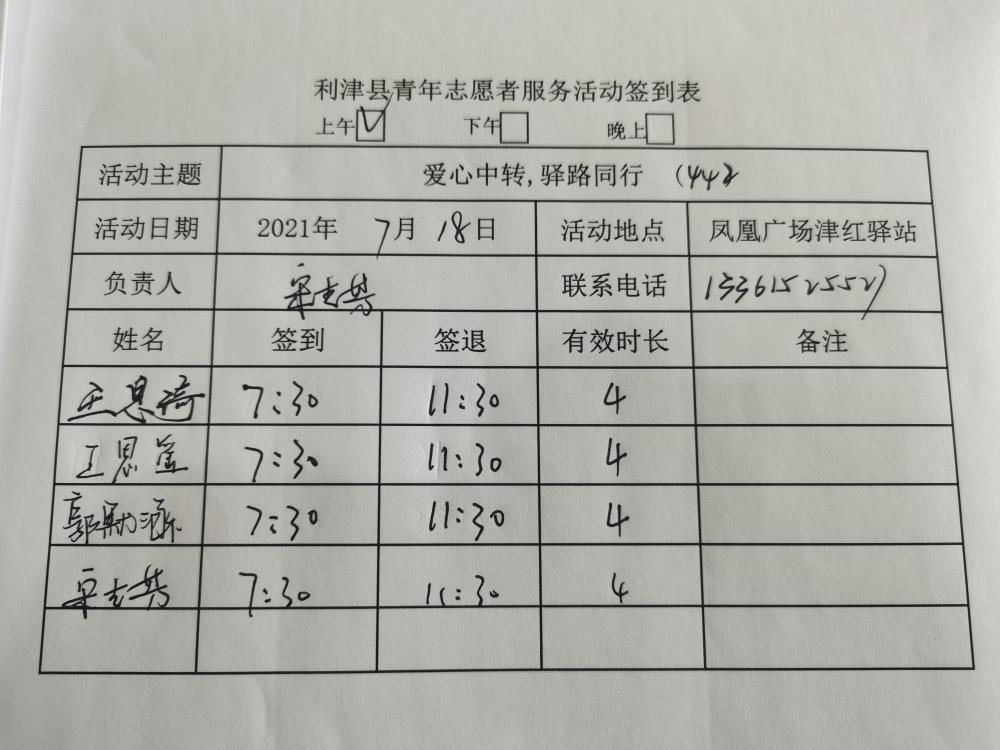 利津县青年志愿者服务活动签到表
上午 ✓ 下午 晚上
活动主题 爱心中转,驿路同行 (442
活动日期 2021年 7月 18日 活动地点 凤凰广场津红驿站
负责人 宋志芳 联系电话 13361525527
姓名 签到 签退 有效时长 备注
王思琦 7:30 11:30 4
王恩笙 7:30 11:30 4
郭 7:30 11:30 4
宋志芳 7:30 11:30 4